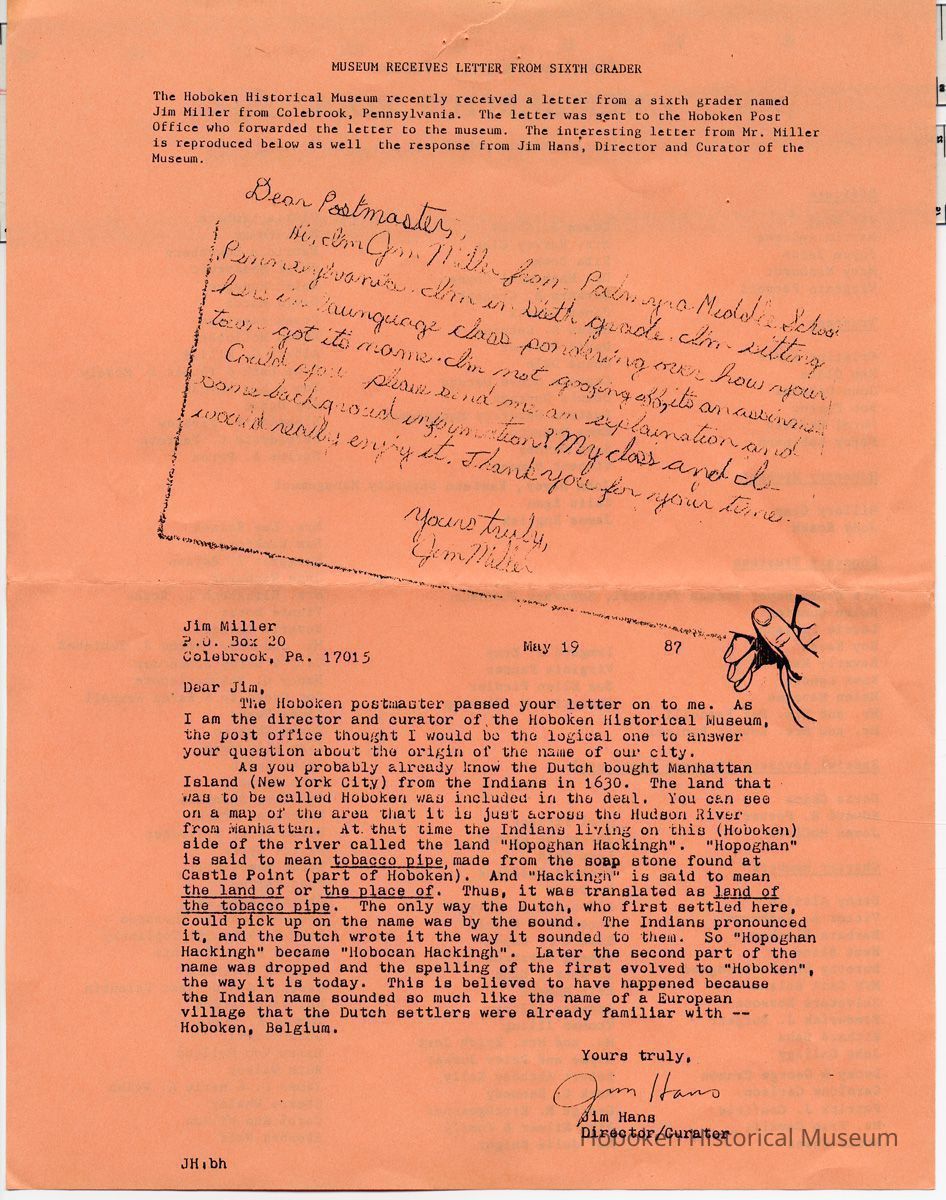 MUSEUM RECEIVES LETTER FROM SIXTH GRADER
The Hoboken Historical Museum recently received a letter from a sixth grader named
Jim Miller from Colebrook, Pennsylvania. The letter was sent to the Hoboken Post
Office who forwarded the letter to the museum. The interesting letter from Mr. Miller
is reproduced below as well the response from Jim Hans, Director and Curator of the
Museum.
Dear Postmaster,
Hi, I'm Jim Miller from Palmyra Middle School
Pennsylvania. I'm in sixth grade. I'm sitting
here in launguage class pondering over how your
town got its name. I'm not goofing off, its an
Could you please send me an explaination and
some background information? My class and I
would really enjoy it. Thank you for your time.
Yours truly,
Jim Miller
Jim Miller
P.O. Box 20
Colebrook, Pa. 17015
May 19 87
Dear Jim,
The Hoboken postmaster passed your letter on to me. As
I am the director and curator of the Hoboken Historical Museum,
the post office thought I would be the logical one to answer
your question about the origin of the name of our city.
As you probably already know the Dutch bought Manhattan
Island (New York City) from the Indians in 1630. The land that
was to be called Hoboken was included in the deal. You can see
on a map of the area that it is just across the Hudson River
from Manhattan. At that time the Indians living on this (Hoboken)
side of the river called the land "Hopoghan Hackingh". "Hopoghan"
is said to mean tobacco pipe made from the soap stone found at
Castle Point (part of Hoboken). And "Hackingh" is said to mean
the land of or the place of. Thus, it was translated as land of
the tobacco pipe. The only way the Dutch, who first settled here,
could pick up on the name was by the sound. The Indians pronounced
it, and the Dutch wrote it the way it sounded to them. So "Hopoghan
Hackingh" became "Hobocan Hackingh". Later the second part of the
name was dropped and the spelling of the first evolved to "Hoboken",
the way it is today. This is believed to have happened because
the Indian name sounded so much like the name of a European
village that the Dutch settlers were already familiar with --
Hoboken, Belgium.
Yours truly,
Jim Hans
Jim Hans
Director/Curator
Hoboken Historical Museum
JH:bh